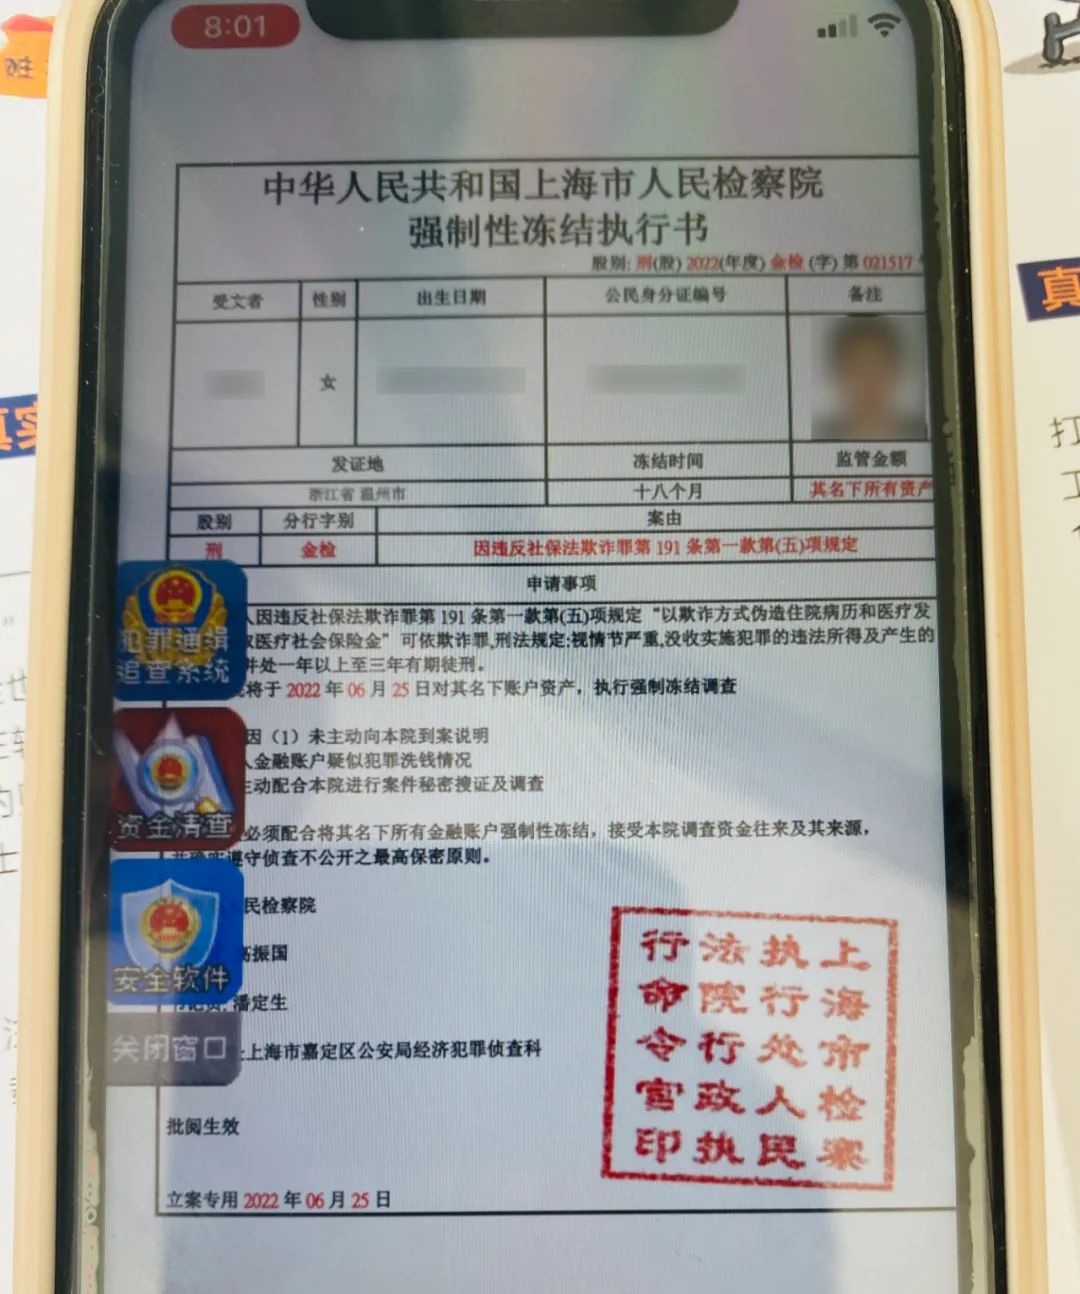 8:01
中华人民共和国上海市人民检察院
强制性冻结执行书
股别: 刑(股) 2022(年度) 金检 (字) 第 021517
受文者 性别 出生日期 公民身分证编号 备注
女
发证地 冻结时间 监管金额
浙江省 温州市 十八个月 其名下所有资产
股别 分行字别 案由
刑 金检 因违反社保法欺诈罪第 191 条第一款第(五)项规定
申请事项
人因违反社保法欺诈罪第 191 条第一款第(五)项规定 “以欺诈方式伪造住院病历和医疗发
取医疗社会保险金” 可依欺诈罪,刑法规定:视情节严重,没收实施犯罪的违法所得及产生的
并处一年以上至三年有期徒刑。
将于 2022 年 06 月 25 日对其名下账户资产，执行强制冻结调查
因（1）未主动向本院到案说明
人金融账户疑似犯罪洗钱情况
主动配合本院进行案件秘密搜证及调查
必须配合将其名下所有金融账户强制性冻结，接受本院调查资金往来及其来源，
遵守侦查不公开之最高保密原则。
民检察院
高振国
潘定生
上海市嘉定区公安局经济犯罪侦查科
批阅生效
立案专用 2022 年 06 月 25 日
犯罪通缉
追查系统
资金清查
安全软件
关闭窗口
上海市检察
执行处人民
法院行政执
行命令官印
真实
真
扛
工